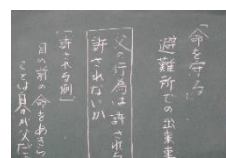 「命を守る」
避難所での出来事
父の行為は許される
許されないか
「許される側」
目の前の命をあきら
ことは自分が人だ